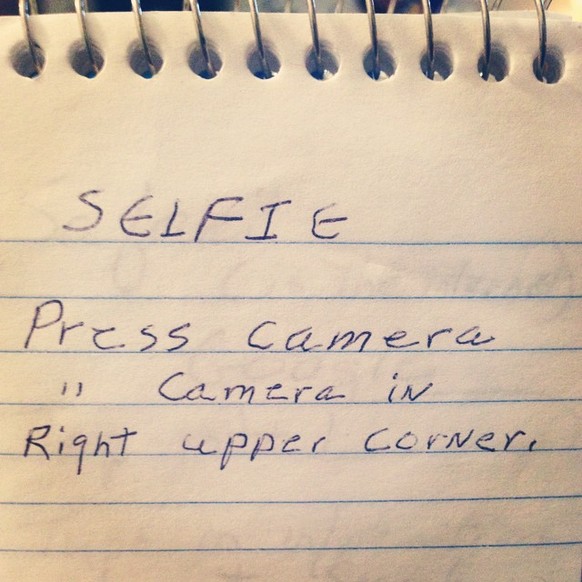 SELFIE
Press camera
" Camera in
Right upper corner.